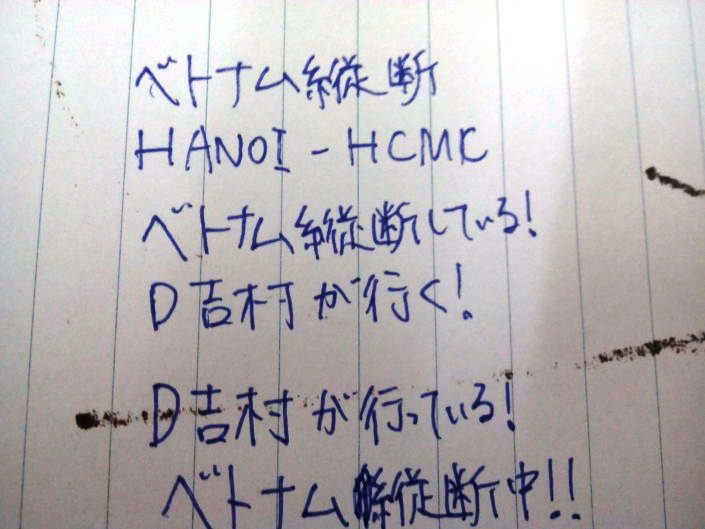 ベトナム縦断
HANOI - HCMC
ベトナム縦断している!
D吉村が行く!
D吉村が行っている!
ベトナム縦断中!!